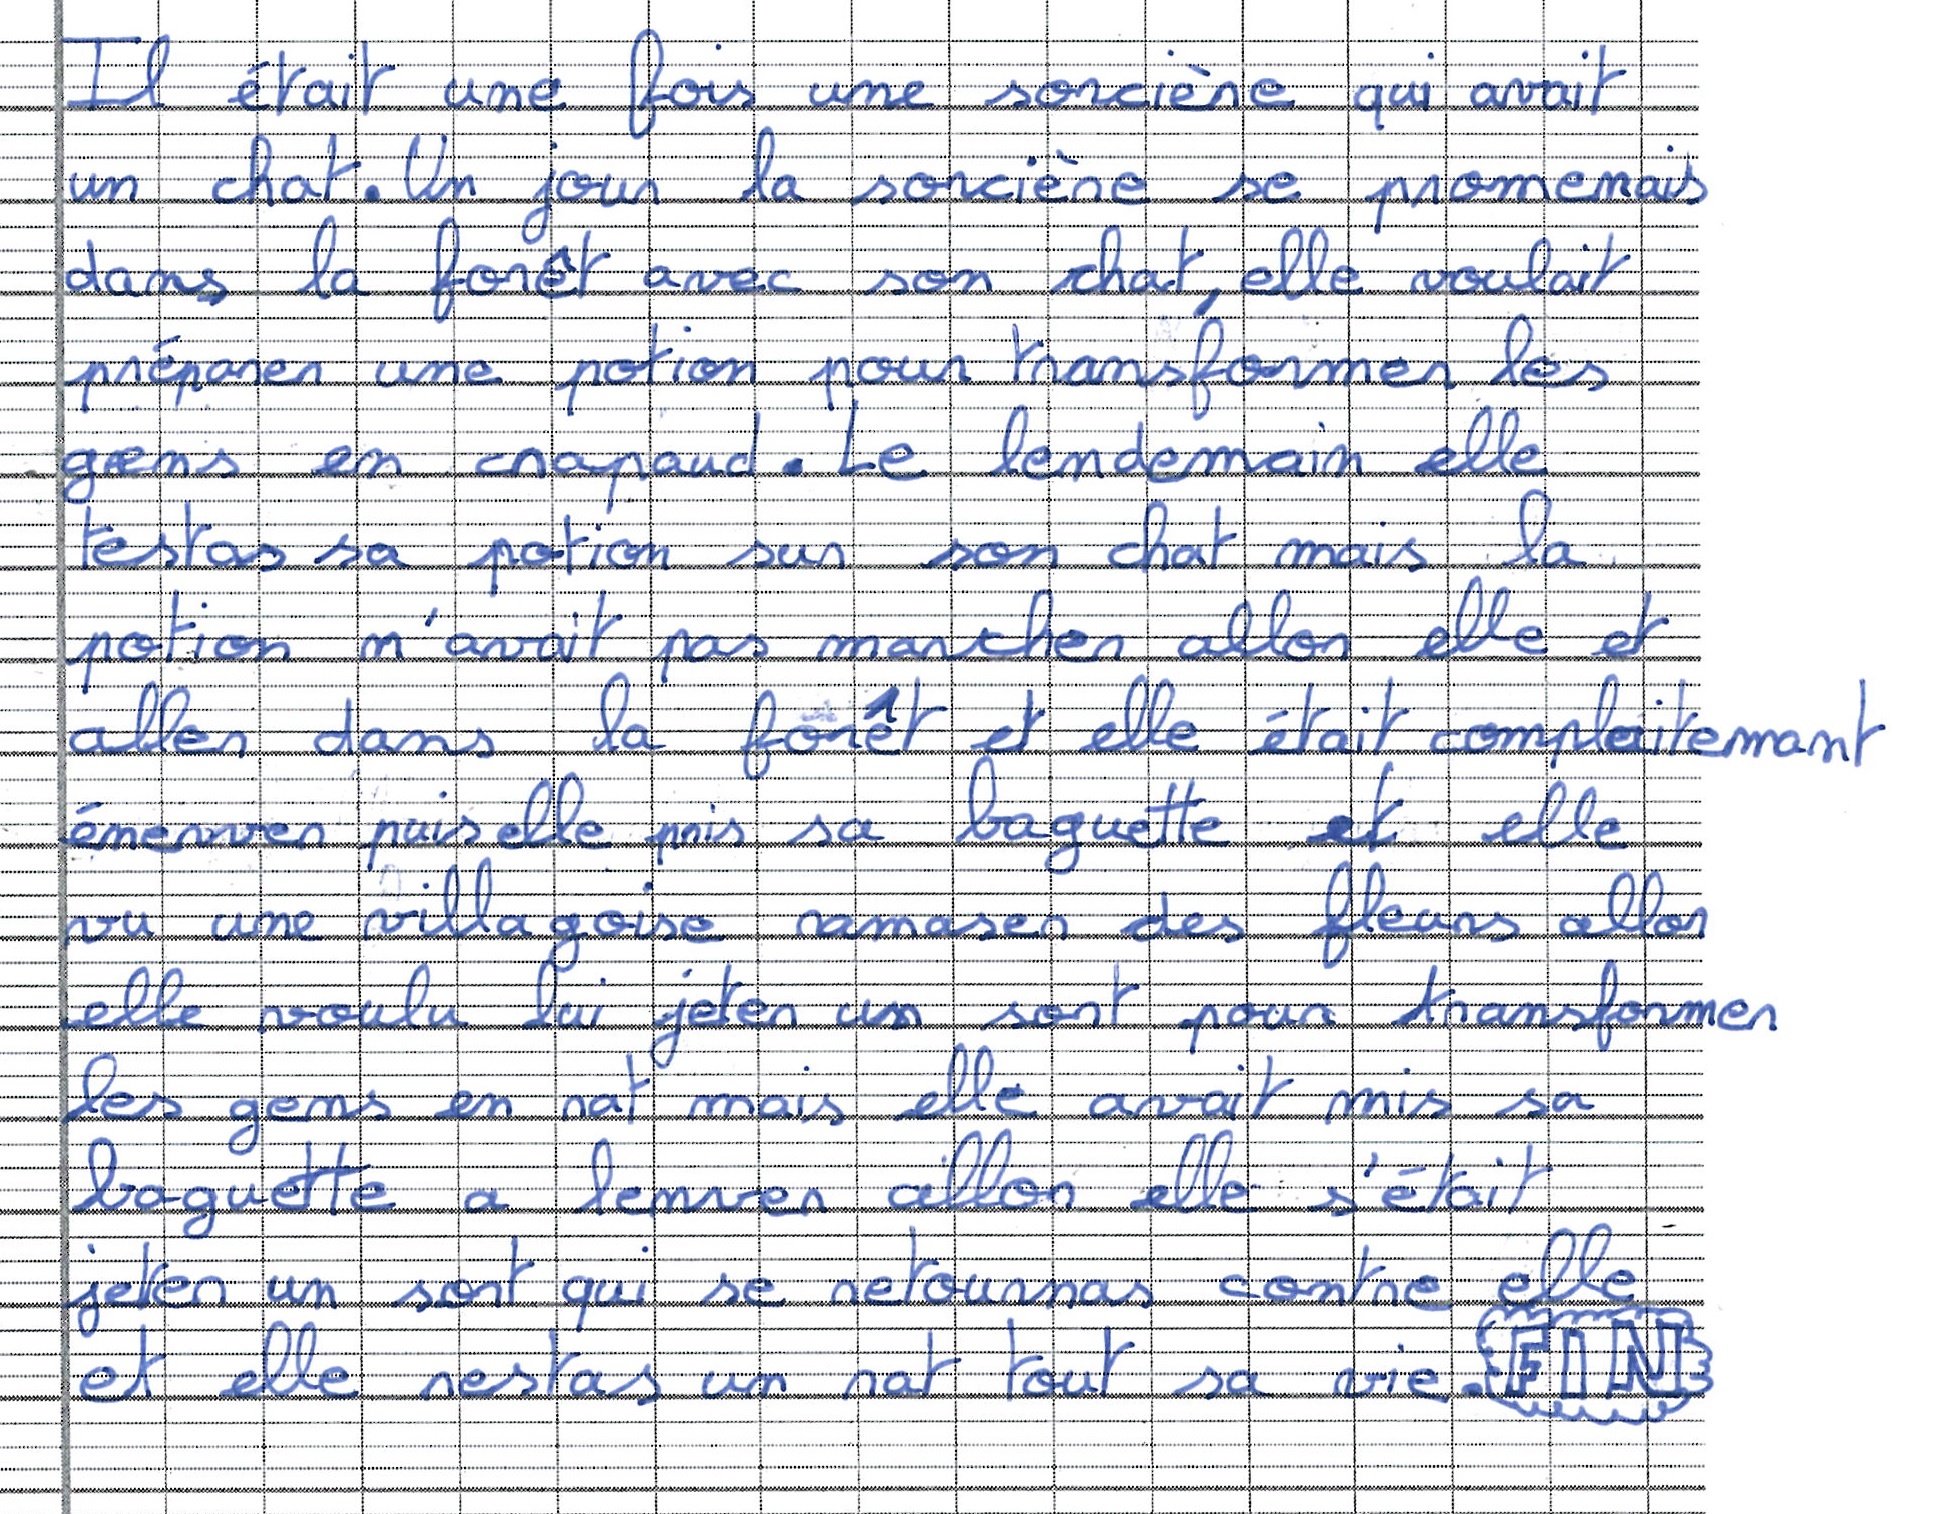 Il était une fois une sorcière qui avait
un chat. Un jour la sorcière se promenais
dans la forêt avec son chat, elle voulait
préparer une potion pour transformer les
gens en crapaud. Le lendemain elle
testas sa potion sur son chat mais la
potion n'avait pas marcher allor elle et
aller dans la forêt et elle était complaitemant
énerver puis elle pris sa baguette et elle
vu une villagoise ramaser des fleurs allor
elle voulu lui jeter un sort pour transformer
les gens en rat mais elle avait mis sa
baguette a lenver allor elle s'était
jeter un sort qui se retournas contre elle
et elle restas un rat tout sa vie. FIN